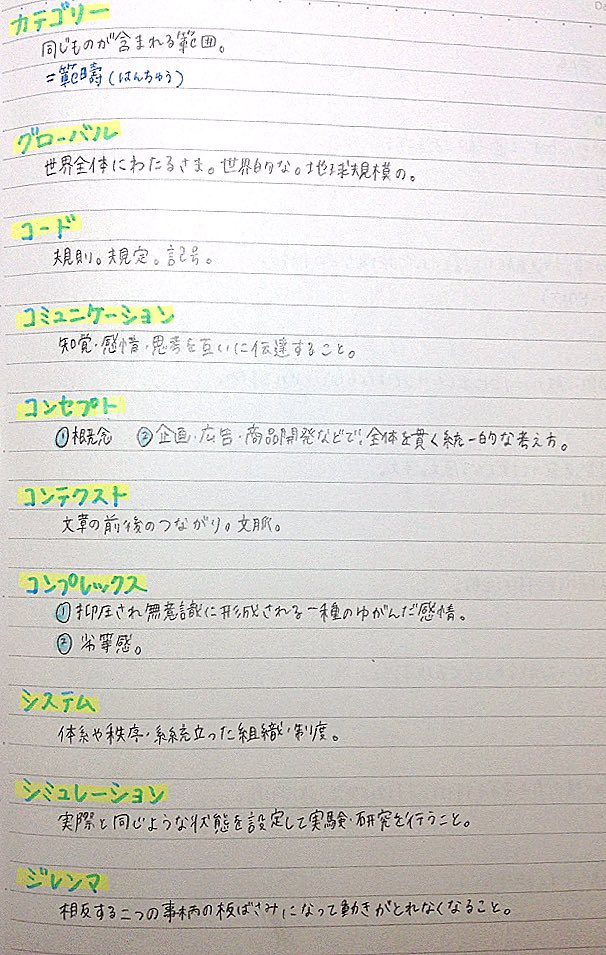 カテゴリー
同じものが含まれる範囲。
=範疇(はんちゅう)
グローバル
世界全体にわたるさま。世界的な。地球規模の。
コード
規則。規定。記号。
コミュニケーション
知覚・感情・思考を互いに伝達すること。
コンセプト
①概念 ②企画・広告・商品開発などで、全体を貫く統一的な考え方。
コンテクスト
文章の前後のつながり。文脈。
コンプレックス
①抑圧され無意識に形成される一種のゆがんだ感情。
②劣等感。
システム
体系や秩序・系統立った組織・制度。
シミュレーション
実際と同じような状態を設定して実験・研究を行うこと。
ジレンマ
相反する二つの事柄の板ばさみになって動きがとれなくなること。